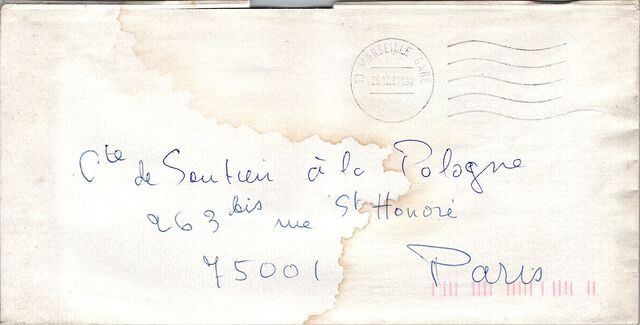 13 MARSEILLE GARE
Cte de Soutien à la Pologne
263 bis rue St Honoré
75001 Paris